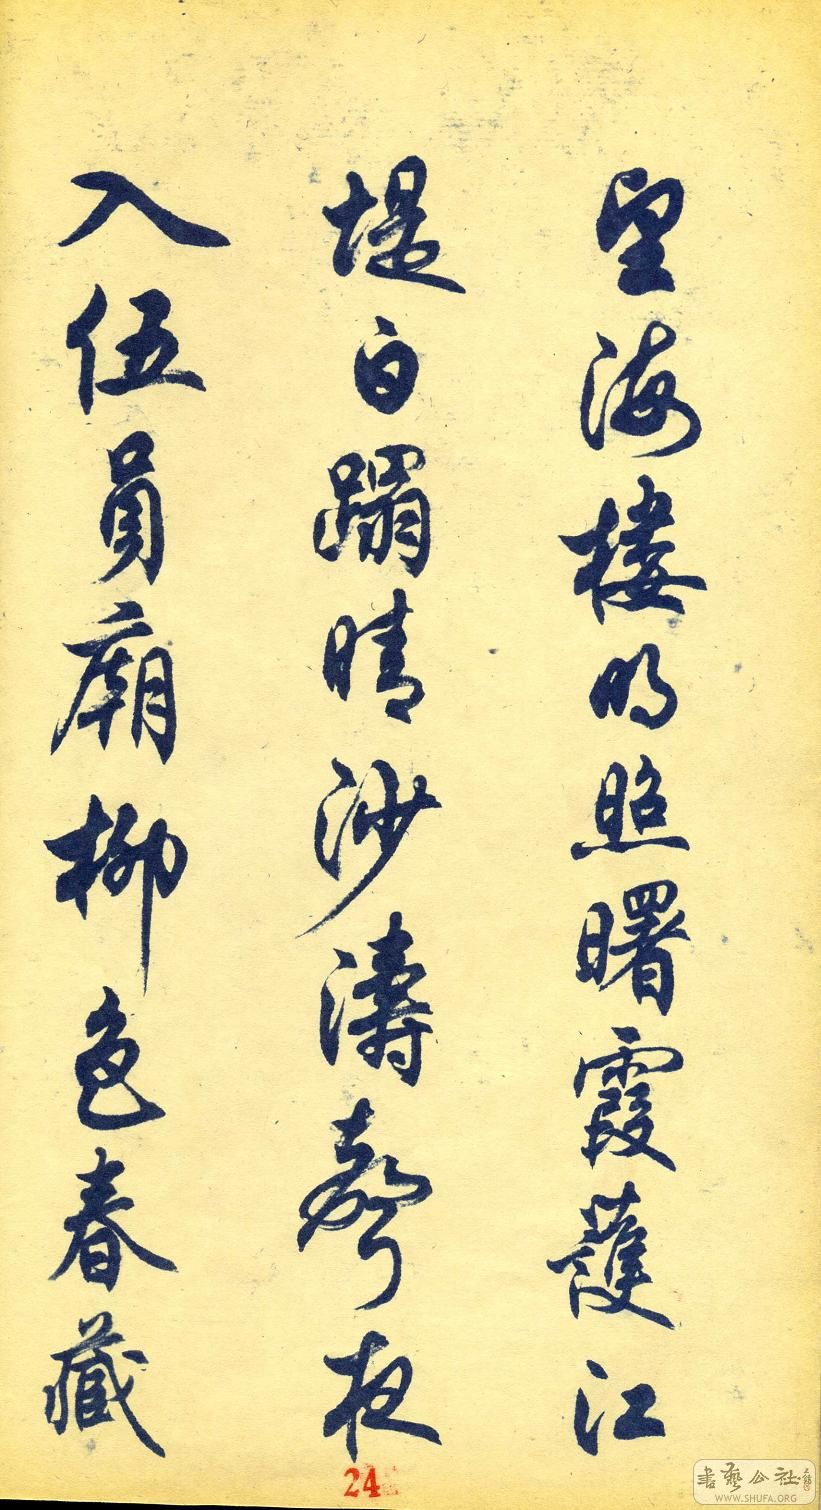 望海樓明照曙霞護江
堤白蹋晴沙濤聲夜
入伍員廟柳色春藏
24
書藝公社
WWW.SHUFA.ORG